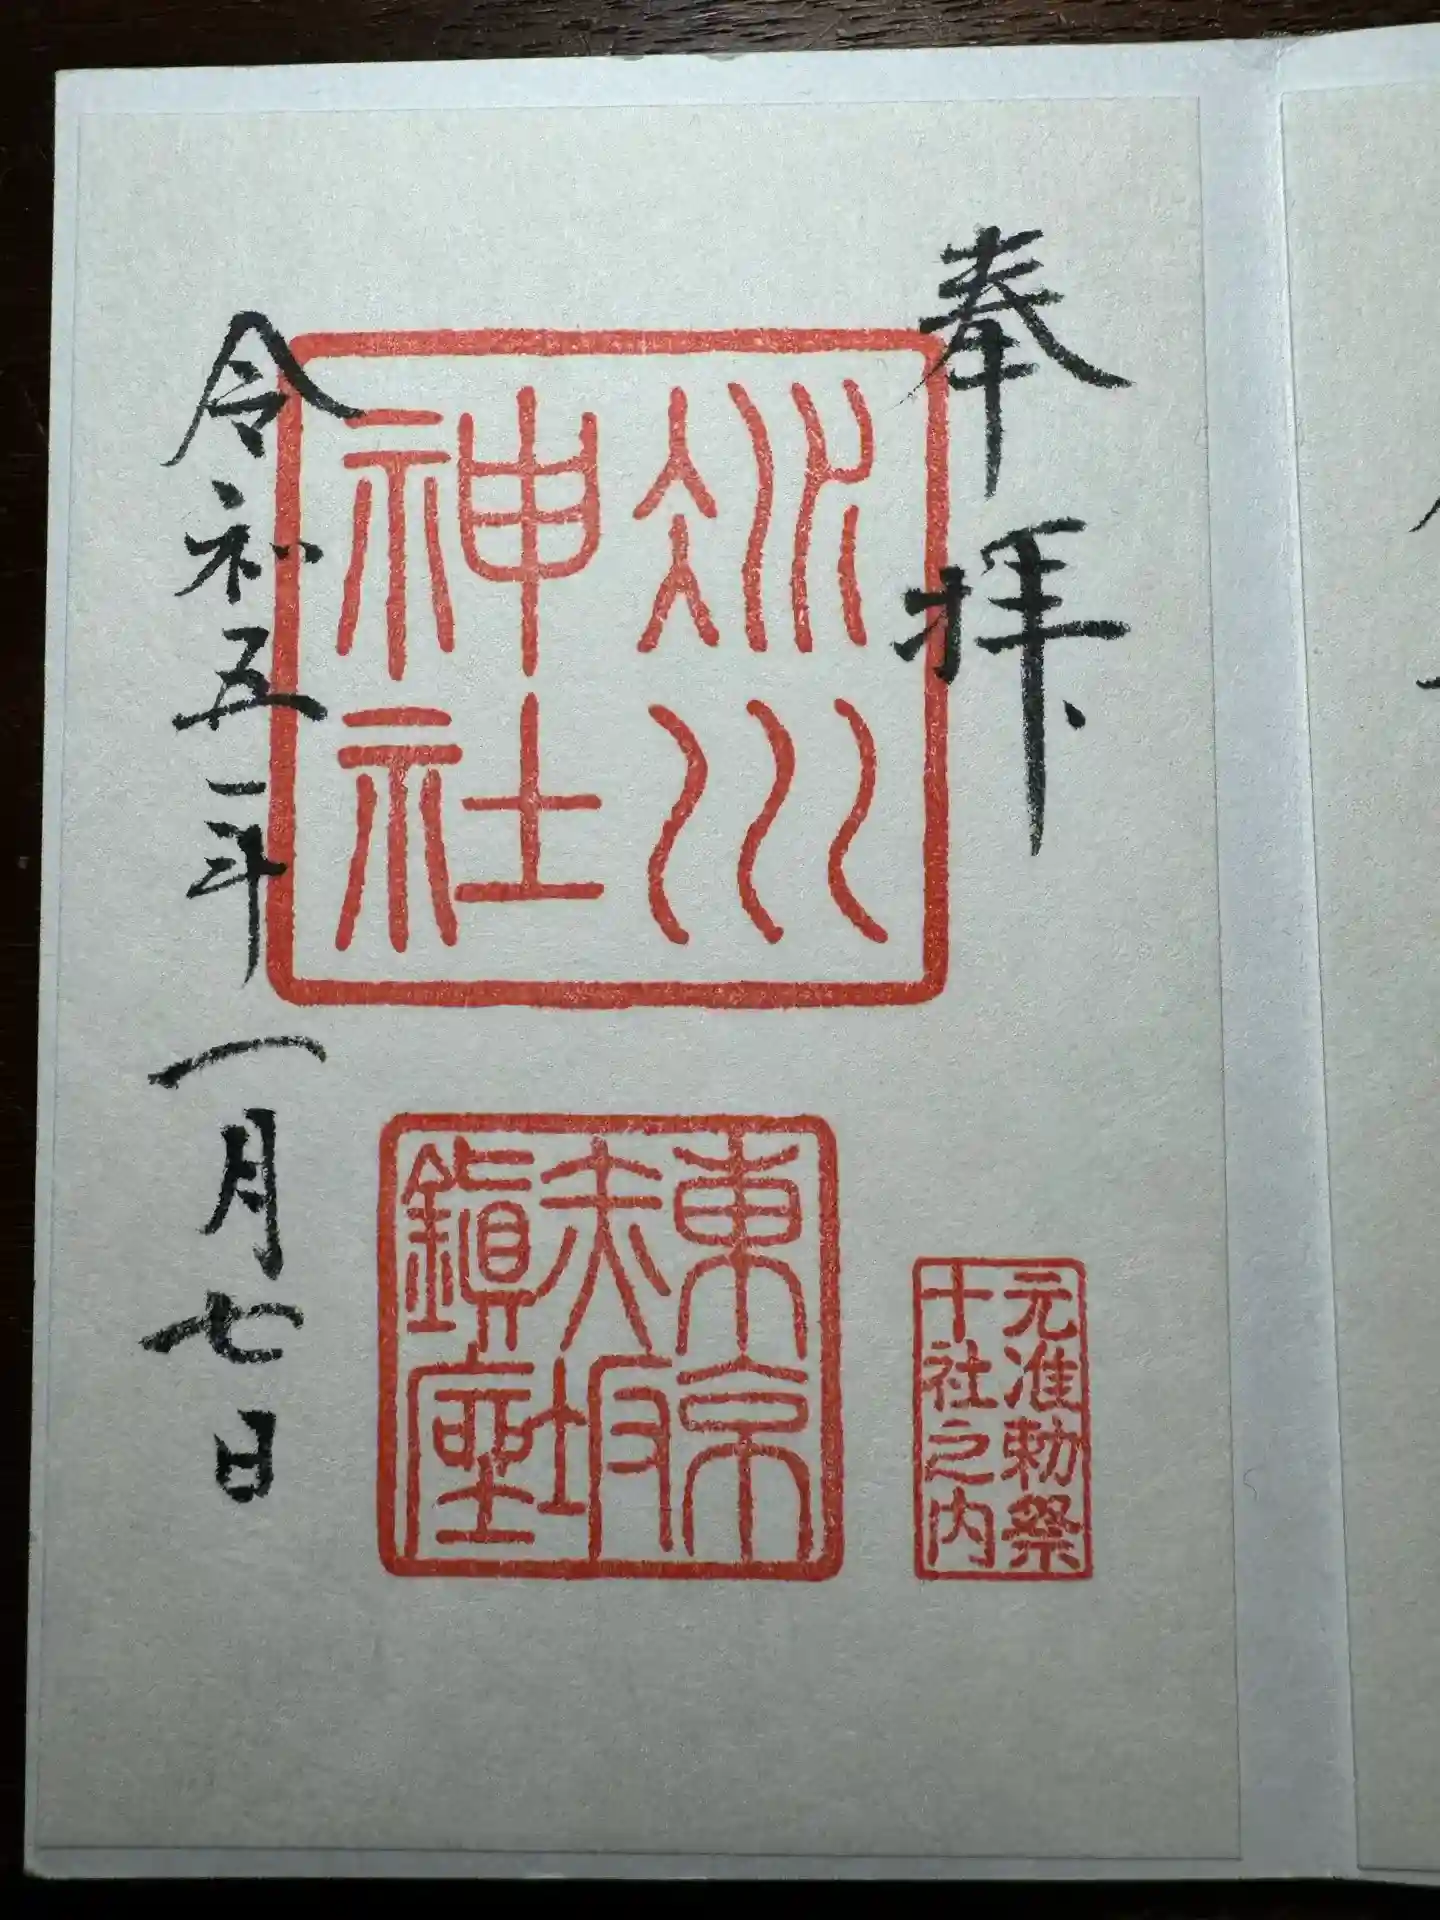 奉拝
氷川
神社
元准勅祭
十社之内
東京
赤坂
鎮座
令和五年一月七日